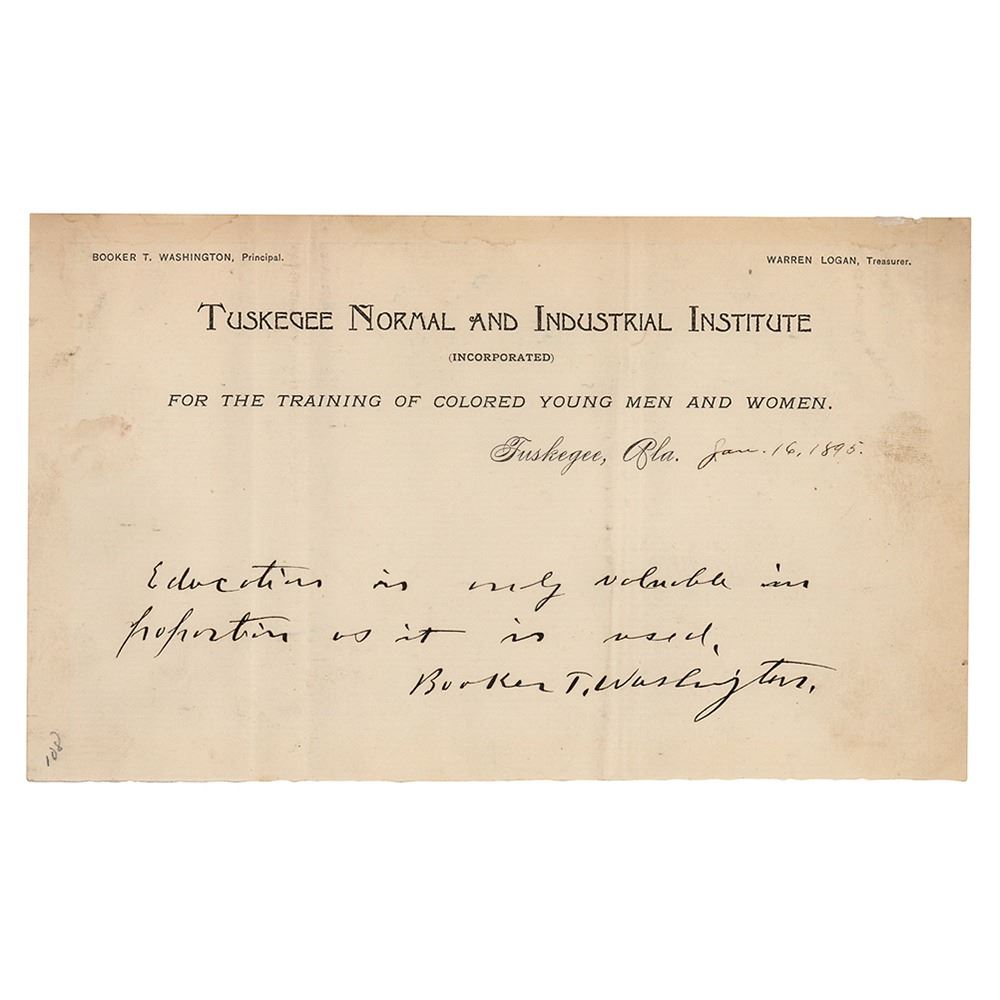 BOOKER T. WASHINGTON, Principal.
WARREN LOGAN, Treasurer.
TUSKEGEE NORMAL AND INDUSTRIAL INSTITUTE
(INCORPORATED)
FOR THE TRAINING OF COLORED YOUNG MEN AND WOMEN.
Tuskegee, Ala. Jan. 16, 1895.
Education is only valuable in
proportion as it is used.
Booker T. Washington.
108